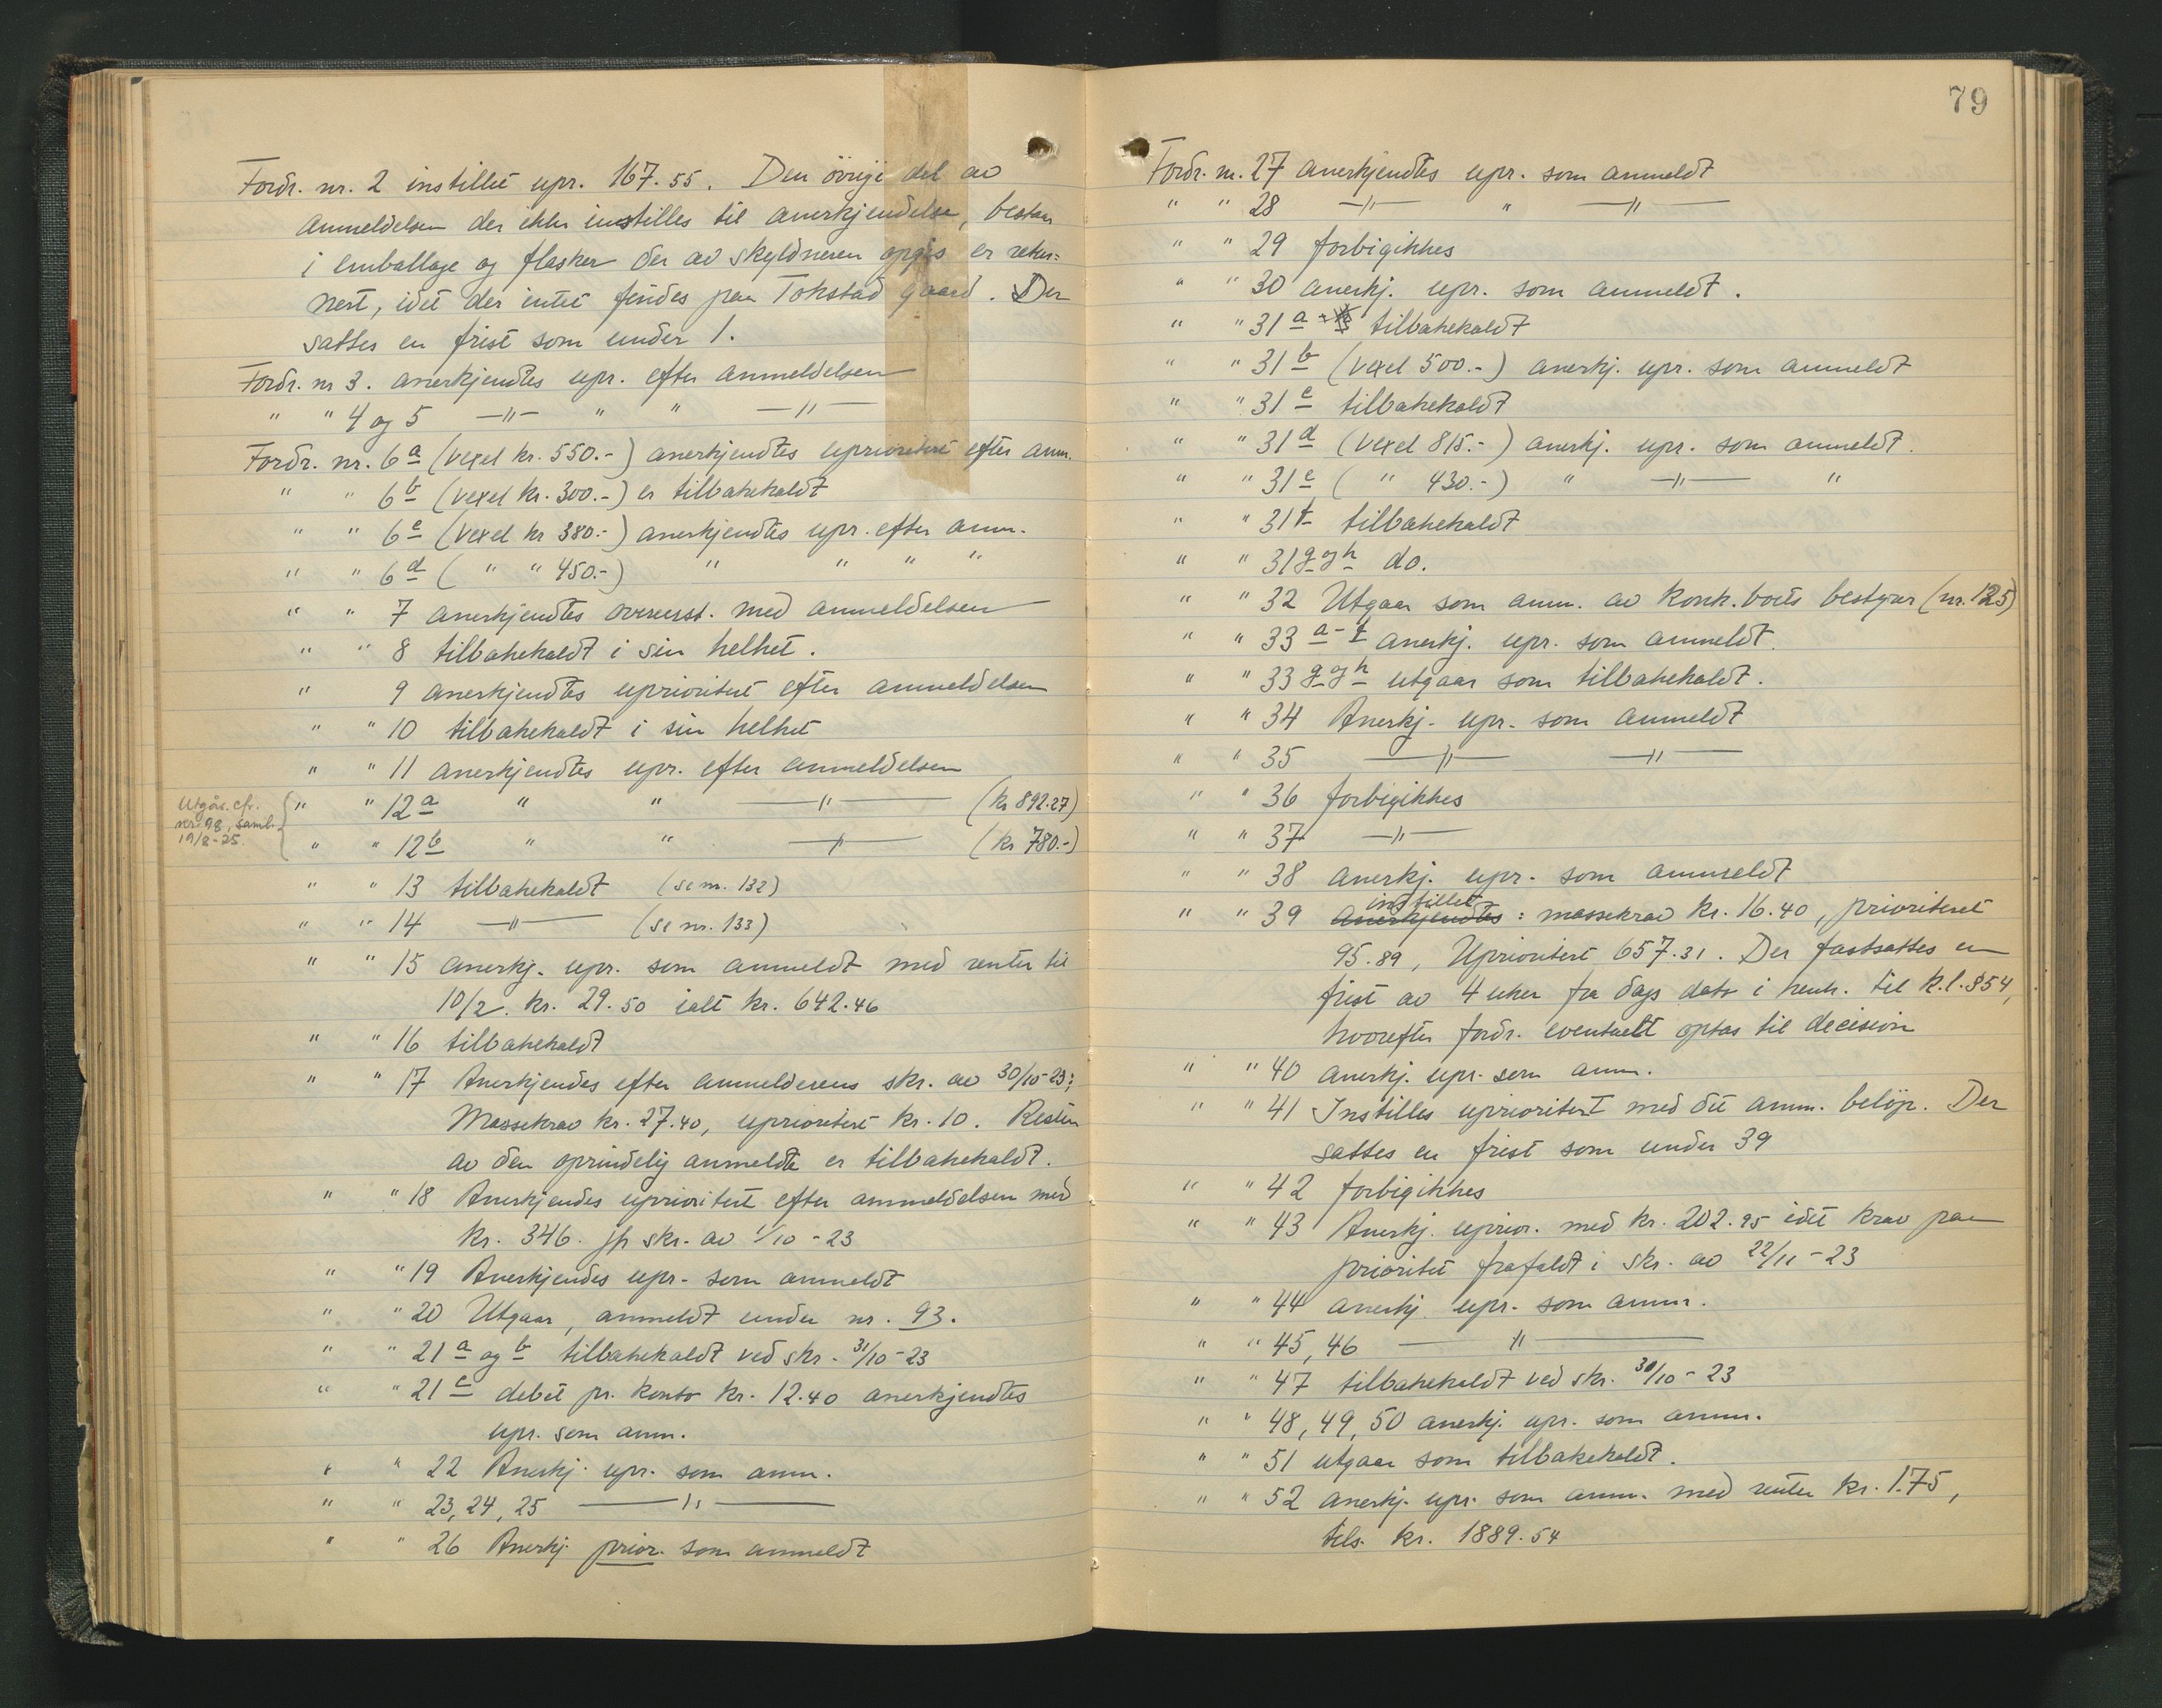 Fordr. nr. 2 instillet upr. 167.55. Den övrige del av
anmeldelsen der ikke instilles til anerkjendelse, bestaar
i emballage og flasker der av skyldneren opgis er retur=
nert, idet der intet findes paa Tokstad gaard. Der
sattes en frist som under 1.
Fordr. nr 3. anerkjendtes upr. efter anmeldelsen
" " 4 og 5 —"— " " —"—
Fordr. nr. 6 a (vexel kr. 550.-) anerkjendtes uprioritert efter anm.
" " 6 b (vexel kr. 300.-) er tilbakekaldt
" " 6 c (vexel kr 380.-) anerkjendtes upr. efter anm.
" " 6 d ( " " 450.-) " " " "
" " 7 anerkjendtes overenst. med anmeldelsen
" " 8 tilbakekaldt i sin helhet.
" 9 anerkjendtes uprioritert efter anmeldelsen
" " 10 tilbakekaldt i sin helhet
" " 11 anerkjendtes upr. efter anmeldelsen
" " 12 a " " —"— (kr 892.27)
Utgår. cfr.
nr. 98, samb.
19/8-25.
" " 12 b " " —"— (kr 780.-)
" " 13 tilbakekaldt (se nr. 132)
" " 14 —"— (se nr. 133)
" " 15 anerkj. upr. som anmeldt med renter til
10/2. kr. 29.50 ialt kr. 642.46
" " 16 tilbakekaldt
" " 17 Anerkjendes efter anmelderens skr. av 30/10-23:
Massekrav kr. 27.40, uprioritert kr. 10. Resten
av den oprindelig anmeldte er tilbakekaldt.
" " 18 Anerkjendes uprioritert efter anmeldelsen med
kr. 346. jfr skr. av 1/10-23
" " 19 Anerkjendes upr. som anmeldt
" " 20 Utgaar, anmeldt under nr. 93.
" " 21 a og b tilbakekaldt ved skr. 31/10-23
" " 21 c debet pr. konto kr. 12.40 anerkjendtes
upr. som anm.
" " 22 Anerkj. upr. som anm.
" " 23, 24, 25 —"—
" " 26 Anerkj. prior. som anmeldt
79
Fordr. nr. 27 anerkjendtes upr. som anmeldt
" " 28 —"— " —"—
" " 29 forbigikkes
" " 30 anerkj. upr. som anmeldt.
" " 31 a tilbakekaldt
" " 31 b (vexel 500.-) anerkj. upr. som anmeldt
" " 31 c tilbakekaldt
" " 31 d (vexel 815.-) anerkj. upr. som anmeldt.
" " 31 e ( " 430.-) " —"— "
" " 31 f tilbakekaldt
" " 31 g og h do.
" " 32 Utgaar som anm. av konk.boets bestyrer (nr. 125)
" " 33 a-f anerkj. upr. som anmeldt.
" " 33 g og h utgaar som tilbakekaldt.
" " 34 Anerkj. upr. som anmeldt
" " 35 —"— —"—
" " 36 forbigikkes
" " 37 —"—
" " 38 anerkj. upr. som anmeldt
instillet
" " 39 anerkjendtes: massekrav kr. 16.40, prioritert
95.89, Uprioritert 657.31. Der fastsattes en
frist av 4 uker fra dags dato i henh. til k.l. §54,
hvorefter fordr. eventuelt optas til decision
" " 40 anerkj. upr. som anm.
" " 41 Instilles uprioritert med det anm. belöp. Der
sattes en frist som under 39
" " 42 forbigikkes
" " 43 Anerkj. uprior. med kr. 202.95 idet krav paa
prioritet frafaldt i skr. av 22/11-23
" " 44 anerkj. upr. som anm.
" " 45, 46 —"—
" " 47 tilbakekaldt ved skr. 30/10-23
" " 48, 49, 50 anerkj. upr. som anm.
" " 51 utgaar som tilbakekaldt.
" " 52 anerkj. upr. som anm. med renter kr. 1.75,
tils. kr. 1889.54